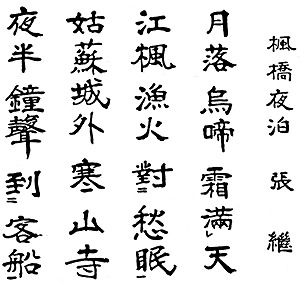 楓橋夜泊 張繼
月落烏啼霜滿レ天
江楓漁火對二愁眠一
姑蘇城外寒一山寺
夜半鐘聲到二客船一